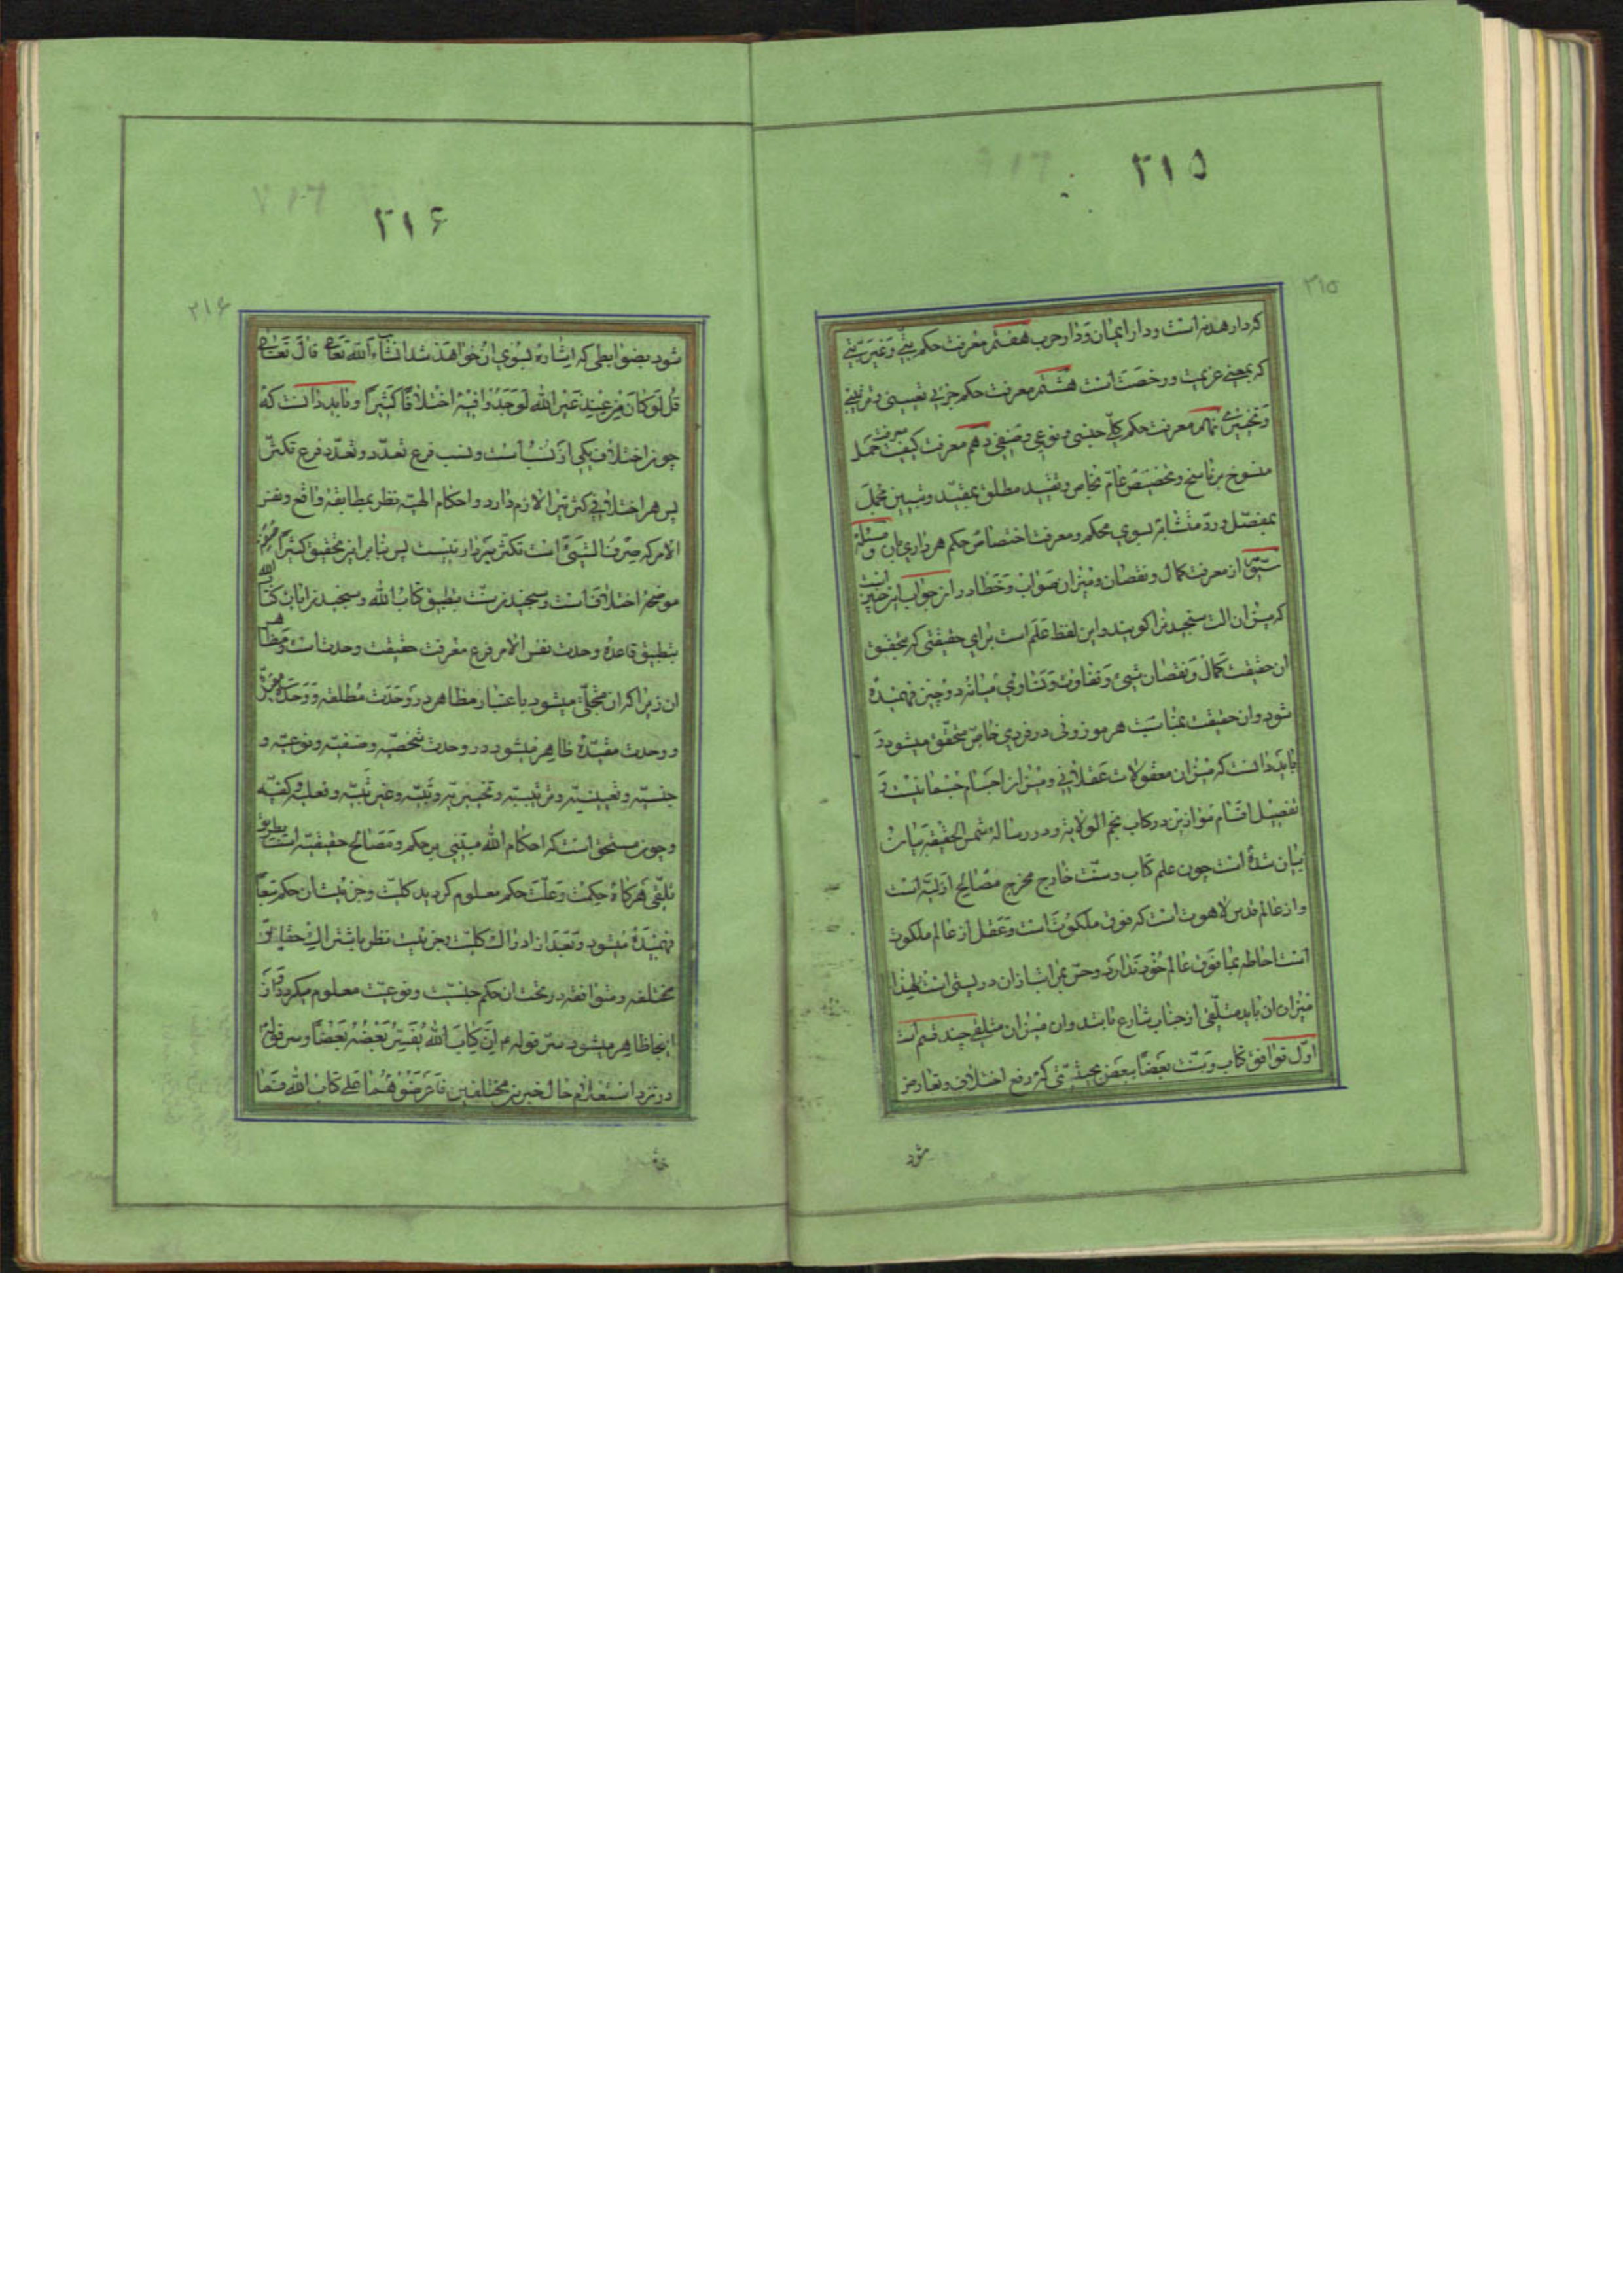 ۲۱۵
۲۱۵
که دار هدنه است و دار ایمان و دار حرب هفتم معرفت حکم بتّی و غیر بتّی
که بمعنی عزیمت و رخصت است هشتم معرفت حکم جزئی تعیینی و ترتیبی
و تخییری نهم معرفت حکم کلّی جنسی و نوعی و صنفی دهم معرفت کیفیت حمل
منسوخ بر ناسخ و تخصیص عامّ بخاصّ و تقیید مطلق بمقیّد و تبیین مجمل
بمفصّل و ردّ متشابه بسوی محکم و معرفت اختصاص حکم هر داری بآن و مسئله
سیّم از معرفت کمال و نقصان و میزان صواب و خطا در آن جواب این چنین است
که میزان آلت سنجیدن را گویند و این لفظ علم است برای حقیقتی که بتحقق
آن حقیقت کمال و نقصان شیء و تفاوت و تساوی میانه دو چیز فهمیده
شود و آن حقیقت بمناسبت هر موزونی در فردی خاصّ متحقّق میشود و
باید دانست که میزان معقولات عقلانی و میزان اجسام جسمانیست و
تفصیل اقسام موازین در کتاب نجم الولایة و در رساله شمس الحقیقة
بیان شده است چون علم کتاب و سنّت خارج مخرج مصالح ازلیّه است
و از عالم قدس لاهوت است که فوق ملکوت است و عقل از عالم ملکوت
است احاطه بما فوق عالم خود ندارد و حسّ بمراتب از آن در پستی است لهذا
میزان آن باید متلقّی از جناب شارع باشد و آن میزان متلقی چند قسم است
اوّل توافق کتاب و سنّت بعضاً ببعض بحیثیّتی که رفع اختلاف و تعارض
شود
۲۱۶
۲۱۶
شود بضوابطی که اشاره بسوی آن خواهد شد انشاء الله تعالی قال تعالی
قُل لَو کانَ مِن عِندِ غَیرِ الله لَوَجَدُوا فیهِ اختِلافاً کَثیراً و باید دانست که
چون اختلاف یکی از نسب است و نسب فرع تعدّد و تعدّد فرع تکثّر
پس هر اختلافی کثرتی را لازم دارد و احکام الهیّه نظر بمطابقه واقع و نفس
الامر که صرف الشیء است تکثّر پذیر نیست پس بنابر این تحقیق کثیراً
موضّح اختلافاً است و سنجیدن سنّت بتطبیق کتاب الله و سنجیدن آیات کتاب الله
بتطبیق قاعده وحدت نفس الامر فرع معرفت حقیقت وحدت است و مظاهر
آن زیرا که آن متجلّی میشود باعتبار مظاهر در وحدت مطلقه و وحدت مجرّدة
و وحدت مقیّده ظاهر میشود در وحدت شخصیّه و صنفیّه و نوعیّه و
جنسیّه و تعیینیّه و ترتیبیّه و تخییریّه و بتّیّه و غیر بتّیّه و فعلیّه و کفّیّه
و چون متحقق است که احکام الله مبتنی بر حکم و مصالح حقیقیّه است بطریق
تلقّی هر گاه حکمت و علّت حکم معلوم گردید کلیّت و جزئیت آن حکم تبعاً
فهمیده میشود و بعد از ادراک کلیّت و جزئیت نظر باشتراک حقایق
مختلفه و متوافقه در تحت آن حکم جنسیّت و نوعیّت معلوم میگردد و از
اینجا ظاهر میشود سرّ قوله م انّ کتاب الله یفسّر بعضه بعضاً و سر قوله
در نزد استعلام حال خبرین مختلفین فاعرضوهما علی کتاب الله فما